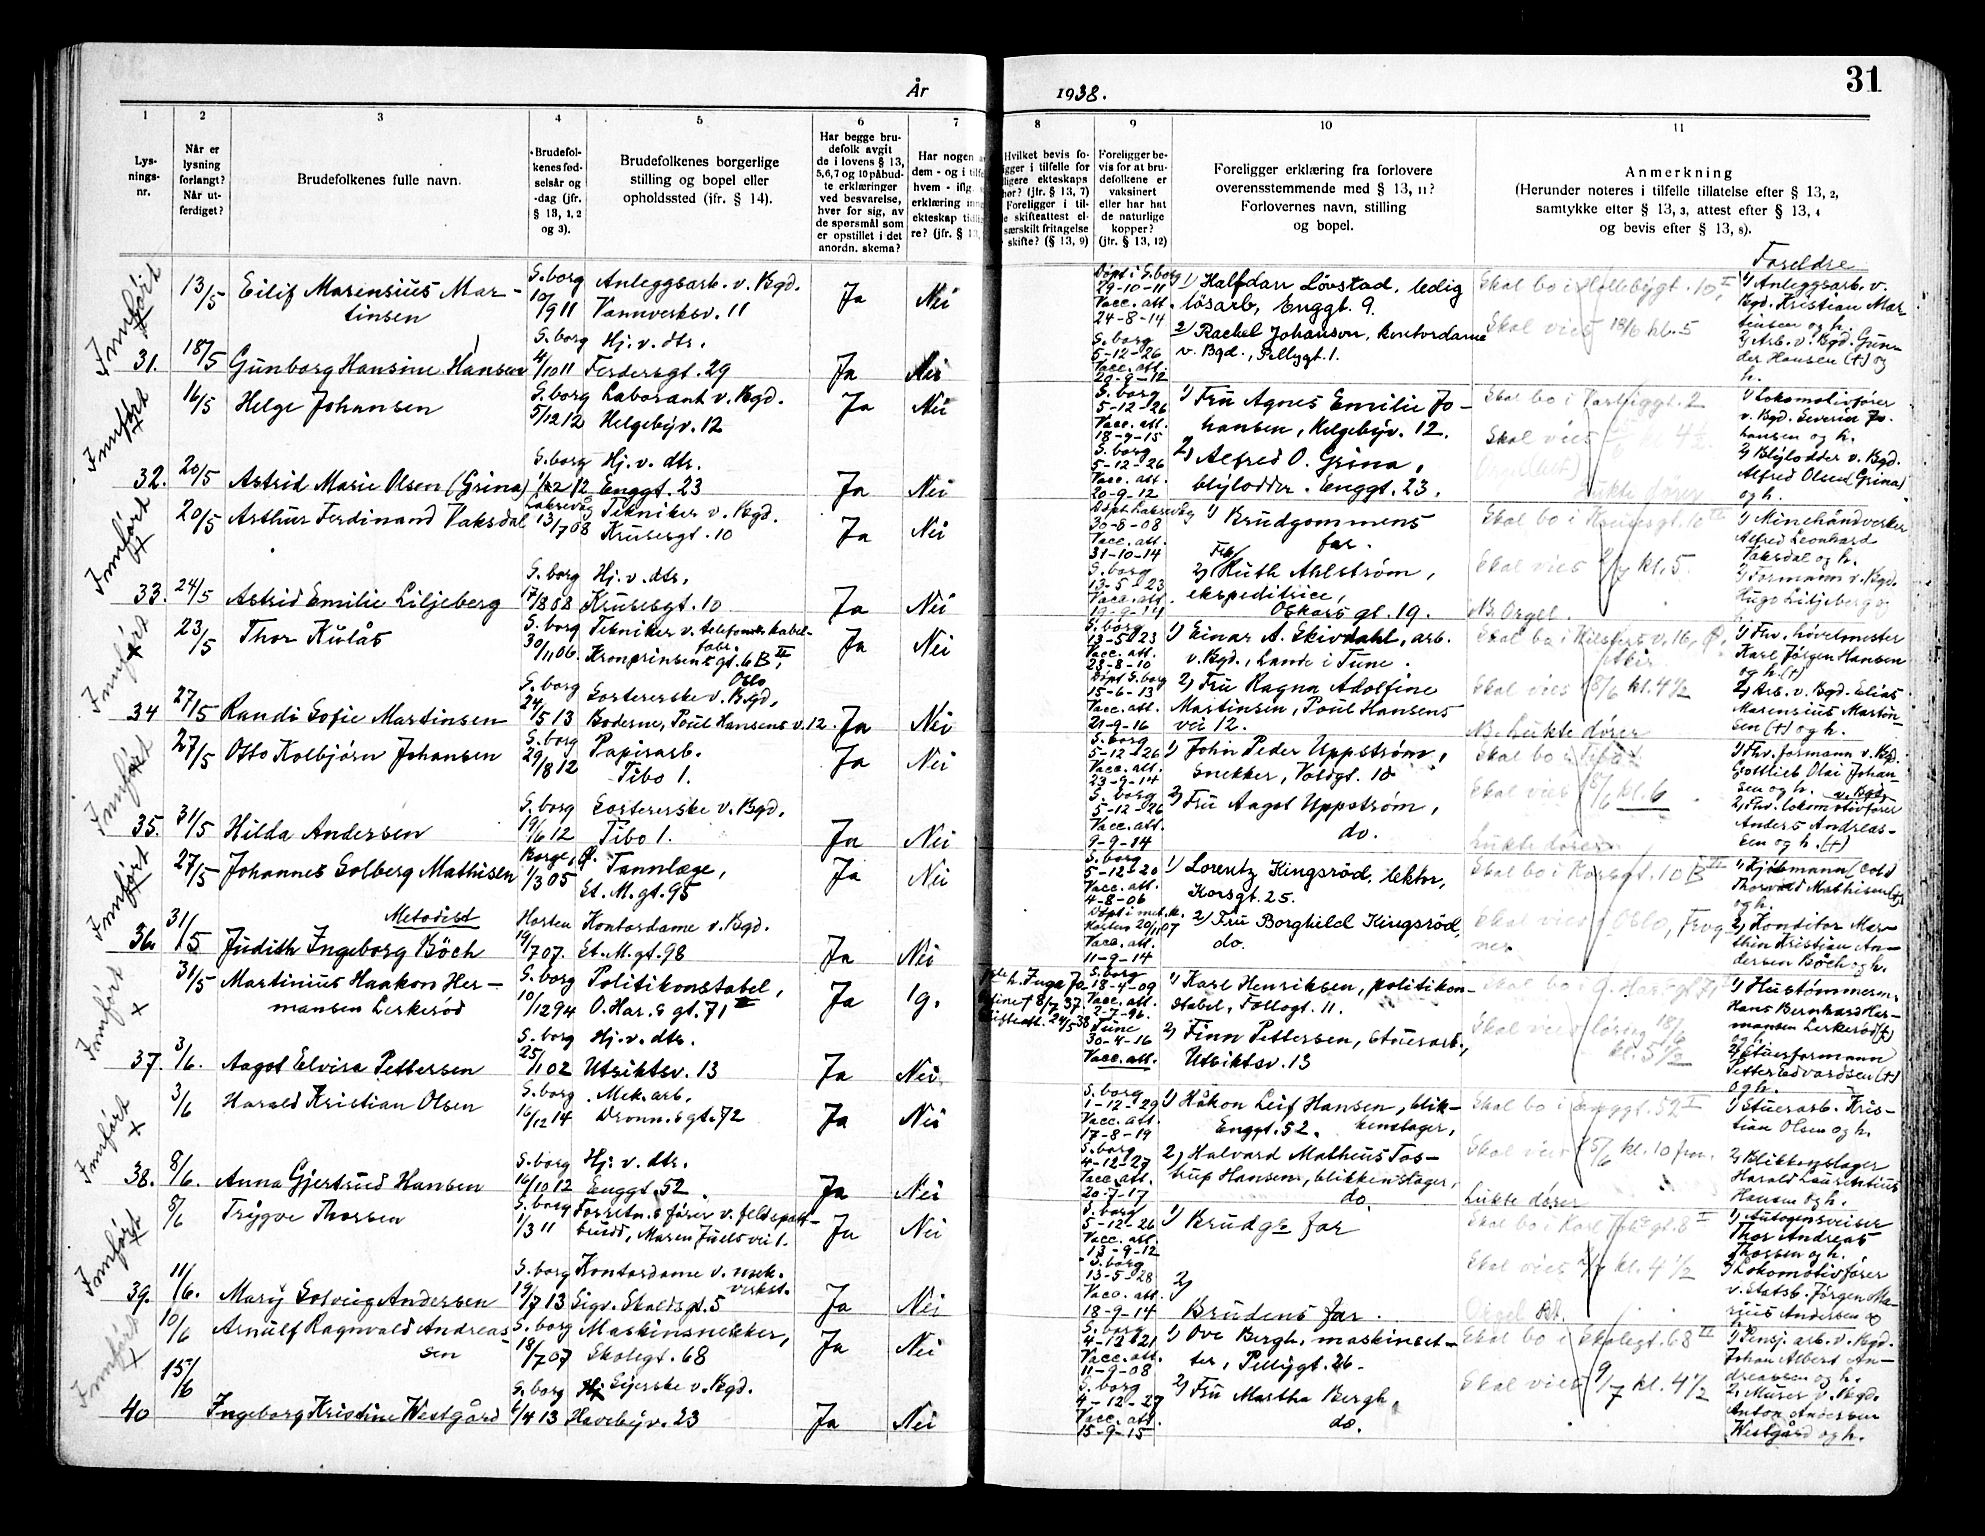 År 1938. 31
1 2 3 4 5 6 7 8 9 10 11
Lys-
nings-
nr.
Når er
lysning
forlangt?
Når ut-
ferdiget?
Brudefolkenes fulle navn.
Brudefol-
kenes fød-
selsår og
-dag (jfr.
§ 13, 1, 2
og 3).
Brudefolkenes borgerlige
stilling og bopel eller
opholdssted (jfr. § 14).
Har begge bru-
defolk avgit
de i lovens § 13,
5,6,7 og 10 påbud-
te erklæringer
ved besvarelse,
hver for sig, av
de spørsmål som
er opstillet i det
anordn. skema?
Har nogen
dem - og i
hvem - iflg.
erklæring inng
ekteskap tidli
re? (jfr. § 13,
Hvilket bevis fo-
ligger i tilfelle for
ligere ekteskaps
hør? (jfr. § 13, 7)
Foreligger i til-
e skifteattest el-
særskilt fritagelse
skifte? (§ 13, 9)
Foreligger be-
vis for at bru-
defolkene er
vaksinert
eller har hat
de naturlige
kopper?
(jfr. § 13, 12)
Foreligger erklæring fra forlovere
overensstemmende med § 13, 11?
Forlovernes navn, stilling
og bopel.
Anmerkning
(Herunder noteres i tilfelle tillatelse efter § 13, 2,
samtykke efter § 13, 3, attest efter § 13, 4
og bevis efter § 13, 8).
Foreldre
Innført
13/5 Eilif Marensius Mar-
tinsen
S.borg
10/9 11
Anleggsarb. v. Bgd.
Vannverksv. 11
Ja Nei
Døpt i S.borg
29-10-11
Vacc. att.
24-8-14
1) Halfdan Løvstad, ledig
løsarb, Enggt. 9.
1) Anleggsarb. v.
Bgd. Kristian Mar
tinsen og h.
31. 18/5 Gunborg Hansine Hansen
S.borg
4/10 11
Hj. v. dtr.
Ferdersgt. 29
Ja Nei
S.borg
5-12-26
Vacc. att.
20-9-12
2) Rachel Johanson, kontordame
v. Bgd., Pellygt. 1.
Skal vies 18/6 kl. 5
2) Arb. v. Bgd. Gun-
der Hansen (+) og
h.
Innført
16/5 Helge Johansen
S.borg
5/12 12
Laborant v. Bgd.
Helgebyv. 12
Ja Nei
S.borg
5-12-26
Vacc. att.
18-9-15
1) Fru Agnes Emilie Jo-
hansen, Helgebyv. 12.
1) Lokomotivfører
v. Bgd. Severin Jo-
hansen og h.
32. 20/5 Astrid Marie Olsen (Grina)
S.borg
Hj. v. dtr.
Enggt. 23
Ja Nei
S.borg
5-12-26
Vacc. att.
20-9-12
2) Alfred O. Grina,
blylodder. Enggt. 23.
Skal vies kl. 4½
Lukte dører
2) Blylodder v. Bgd.
Alfred Olsen (Grina)
og h.
Innført
20/5 Arthur Ferdinand Vaksdal
Laksevåg
13/7 08
Tekniker v. Bgd.
Krusesgt. 10
Ja Nei
Døpt Laksevåg
30-8-08
Vacc. att.
31-10-14
1) Brudgommens
far.
Skal bo i Krusesgt. 10 III
1) Minehåndverker
Alfred Leonhard
Vaksdal og h.
33. 24/5 Astrid Emilie Liljeberg
S.borg
17/8 08
Hj. v. dtr.
Krusesgt. 10
Ja Nei
S.borg
13-5-23
Vacc. att.
19-9-14
2) Frk. Ruth Ahlstrøm,
ekspeditrice,
Oskars gt. 19.
Skal vies 2/7 kl. 5.
NB. Orgel.
2) Formann v. Bgd.
Hugo Liljeberg og
Innført
23/5 Thor Kulås
S.borg
30/11 06.
Tekniker v. telefonskabel-
fabr.
Kronprinsensgt. 6 B II,
Oslo
Ja Nei
S.borg
13-5-23
Vacc. att.
23-8-10
1) Einar A. Skivdahl, arb.
v. Bgd., Lande i Tune.
1) Fhv. høvelmester
Karl Jørgen Hansen
og h. (+)
34 27/5 Randi Sofie Martinsen
S.borg
24/5 13
Sortererske v. Bgd,
Boderne, Poul Hansens v. 12.
Ja Nei
Døpt S.borg
15-6-13
Vacc. att.
21-9-16
2) Fru Ragna Adolfine
Martinsen, Poul Hansens
vei 12.
Skal vies 18/6 kl. 4½
NB. Lukte dører
2) Arb. v. Bgd. Elias
Marensius Martin-
sen (+) og h.
Innført
27/5 Otto Kolbjørn Johansen
S.borg
29/8 12
Papirarb.
Tibo 1.
Ja Nei
S.borg
5-12-26
Vacc. att.
23-9-14
1) John Peder Uppstrøm,
snekker, Voldgt. 10
Skal bo i Tibo 1
1) Fhv. formann v. Bgd.
Gottlieb Olai Johan-
sen og h.
35. 31/5 Hilda Andersen
S.borg
19/6 12
Sortererske v. Bgd.
Tibo 1.
Ja Nei
S.borg
5-12-26
Vacc. att.
9-9-14
2) Fru Aagot Uppstrøm,
do.
Skal vies 18/6 kl. 6
Lukte dører
v. Bgd.
2) Fhv. lokomotivfører
Anders Andreas-
sen og h. (+)
Innført
27/5 Johannes Solberg Mathisen
Borge, Ø.
1/3 05
Tannlæge,
St. M. gt. 95
Ja Nei
S.borg
5-12-20
Vacc. att.
4-8-06
1) Lorentz Kingsrød, lektor,
Korsgt. 25.
Skal bo i Korsgt. 10 B III
1) Kjøbmann
Thorvald Mathisen (+)
og h.
Metodist
36. 31/5 Judith Ingeborg Böch
Horten
19/7 07.
Kontordame v. Bgd.
St. M. gt. 98
Ja Nei
Døpt i met. k.
Horten 20/11 07
Vacc. att.
11-9-14
2) Fru Borghild Kingsrød,
do.
Skal vies i Oslo, Frog
ner.
2) Konditor Mar-
thin Kristian An-
dersen Böch og h.
Innført
31/5 Martinius Haakon Her-
mansen Lerkerød
S.borg
10/12 94
Politikonstabel,
O. Har.s gt. 71 II
Ja 1 g.
h. Inga Jo
sefine † 8/7 37.
Skifteatt. 24/5 38
S.borg
18-4-09
Vacc. att.
2-7-96.
1) Karl Henriksen, politikon-
stabel, Follogt. 11.
1) Hustømmerm.
Hans Bernhard Her-
mansen Lerkerød (+)
og h.
37. 3/6. Aagot Elvira Pettersen
S.borg
25/1 02
Hj. v. dtr.
Utsiktsv. 13
Ja Nei
Tune
30-4-16
Vacc. att.
2) Finn Pettersen, stuerarb.,
Utsiktsv. 13
Skal vies lørdag 18/6
kl. 5½
2) Stuerformann
Petter Edvardsen (+)
og h.
Innført
3/6 Harald Kristian Olsen
S.borg
16/12 14
Mek. arb.
Dronn.s gt. 72
Ja Nei
S.borg
1-12-29
Vacc. att.
17-8-19
1) Håkon Leif Hansen, blik-
kenslager,
Enggt. 52.
Skal bo i Enggt. 52 II
1) Stuerarb. Kris-
tian Olsen og h.
38. 8/6. Anna Gjertrud Hansen
S.borg
16/10 12
Hj. v. dtr.
Enggt. 52.
Ja Nei
S.borg
4-12-27
Vacc. att.
20-7-17
2) Halvard Matheus Tos-
trup Hansen, blikkenslager,
do.
Skal vies 15/6 kl. 10 fm.
Lukte dører
2) Blikkenslager
Harald Laurentius
Hansen og h.
Innført
8/6 Trygve Thorsen
S.borg
1/3 11
Forretn.s fører v. feldspatt-
brudd, Maren Juels vei 1.
Ja Nei
S.borg
5-12-26
Vacc. att.
13-9-12
1) Brudgs far
1) Autogensveiser
Thor Andreas
Thorsen og h.
39. 11/6. Mary Solveig Andersen
S.borg
19/7 13
Kontordame v. mek.
verkst.
Sigv. Skaldsgt. 5
Ja Nei
S.borg
13-5-28
Vacc. att.
18-9-14
2)
Brudens far.
Skal vies 2/7 kl. 4½
Orgel
2) Lokomotivfører
v. Statsb. Jørgen Ma-
rius Andersen og
Innført
10/6 Arnulf Ragnvald Andreas
sen
S.borg
18/7 07
Maskinsnekker,
Skolegt. 68
Ja Nei
S.borg
4-12-21
Vacc. att.
11-9-08
1) Ove Bergh, maskinset-
ter, Pellygt. 26.
Skal bo i Skolegt. 68 II
1) Pensj. arb. v. Bgd.
Johan Albert An-
dreassen og h.
40 15/6 Ingeborg Kristine Westgård
S.borg
6/4 13
Syerske v. Bgd.
Havebyv. 23
Ja Nei
S.borg
4-12-27
Vacc. att.
15-9-15
2) Fru Martha Bergh,
do.
Skal vies 9/7 kl. 4½
2) Murer v. Bgd.
Anton Andersen
Westgård og h.